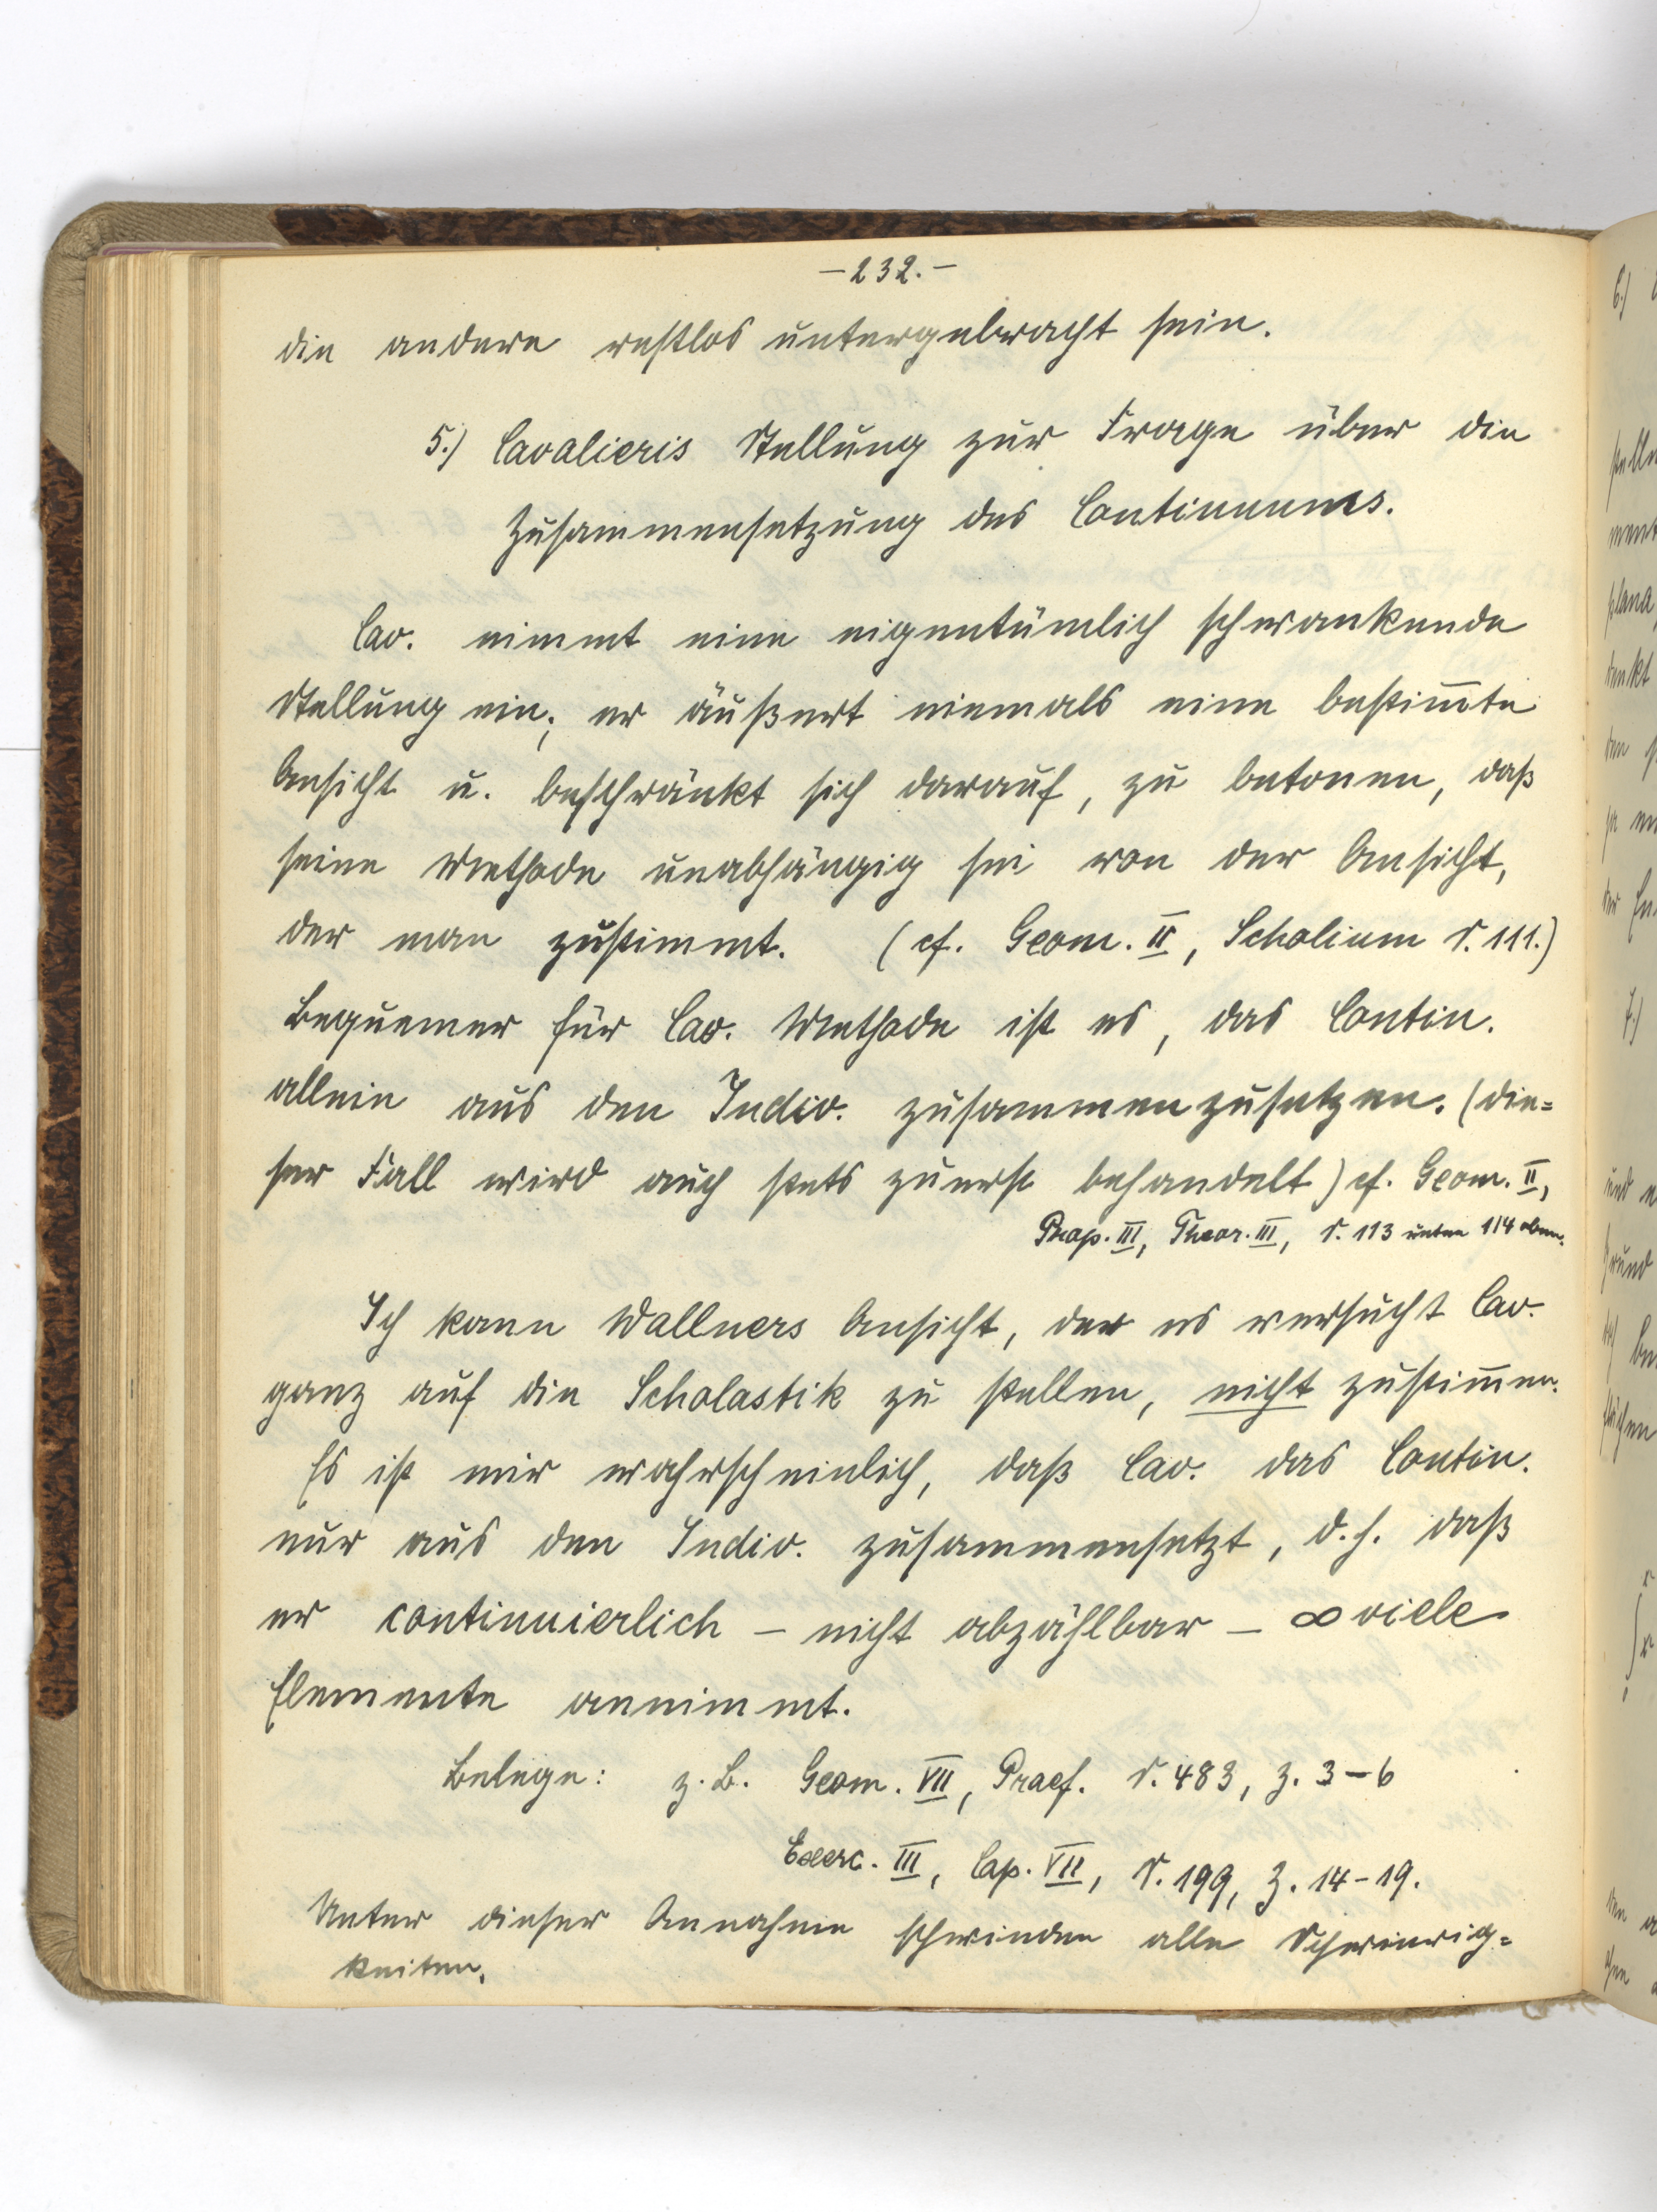 - 232. -
die andere restlos untergebracht sein.
5.) Cavalieris Stellung zur Frage über die
Zusammensetzung des Continuums.
Cav. nimmt eine eigentümlich schwankende
Stellung ein; er äußert niemals eine bestim̅te
Ansicht u. beschränkt sich darauf, zu betonen, daß
seine Methode unabhängig sei von der Ansicht,
der man zustimmt. (cf. Geom. II, Scholium S. 111.)
Bequemer für Cav. Methode ist es, das Contin.
allein aus den Indiv. zusammenzusetzen. (die=
ser Fall wird auch stets zuerst behandelt) cf. Geom. II,
Prop. III, Theor. III, S. 113 unten 114 oben.
Ich kann Wallners Ansicht, der es versucht Cav.
ganz auf die Scholastik zu stellen, nicht zustim̅en.
Es ist mir wahrscheinlich, daß Cav. das Contin.
nur aus den Indiv. zusammensetzt, d.h. daß
er continuierlich - nicht abzählbar - ∞ viele
Elemente annimmt.
Belege: z.B. Geom. VII, Praef. S. 483, Z. 3-6
Exerc. III, Cap. VII, S. 199, Z. 14-19.
Unter dieser Annahme schwinden alle Schwierig=
keiten.